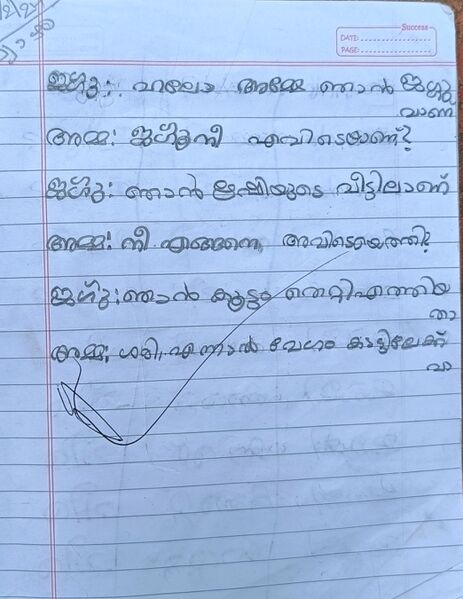 Success
DATE:
PAGE:
ജഗ്ഗു: ഹലോ അമ്മേ ഞാൻ ജഗ്ഗു
വാണ്
അമ്മ: ജഗ്ഗൂ നീ എവിടെയാണ്?
ജഗ്ഗു: ഞാൻ ഋഷിയുടെ വീട്ടിലാണ്
അമ്മ: നീ എങ്ങനെ അവിടെയെത്തി?
ജഗ്ഗു: ഞാൻ കൂട്ടം തെറ്റിഎത്തിയ
താ
അമ്മ: ശരി, എന്നാൽ വേഗം കാട്ടിലേക്ക്
വാ